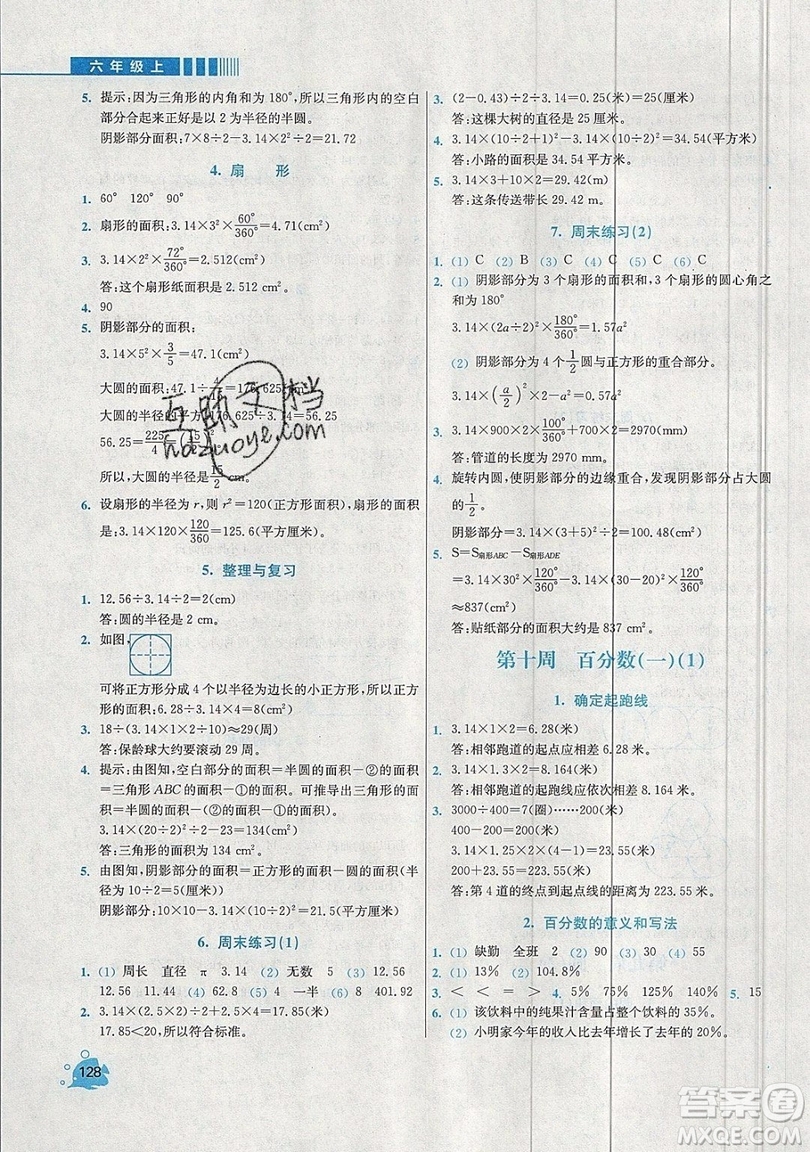 六年级上
5. 提示:因为三角形的内角和为180°,所以三角形内的空白
部分合起来正好是以2为半径的半圆。
阴影部分面积:7×8÷2-3.14×2²÷2=21.72
4. 扇 形
1. 60° 120° 90°
2. 扇形的面积:3.14×3²×60°/360°=4.71(cm²)
3. 3.14×2²×72°/360°=2.512(cm²)
答:这个扇形纸面积是2.512 cm²。
4. 90
5. 阴影部分的面积:
3.14×5²×3/5=47.1(cm²)
大圆面积:47.1÷
=176.625(cm²)
大圆的半径的平方:176.625÷3.14=
56.25=225/4=(15/2)²
所以,大圆的半径是15/2 cm。
6. 设扇形的半径为r,则r²=120(正方形面积),扇形的面积
是:3.14×120×120/360=125.6(平方厘米)
5. 整理与复习
1. 12.56÷3.14÷2=2(cm)
答:圆的半径是2 cm。
2. 如图,
可将正方形分成4个以半径为边长的小正方形,所以,圆
的面积:6.28÷3.14=2,正方形面积:2×4=8
3. 18÷(3.14×1×2÷10)≈29(周)
答:保龄球大约要滚动29周。
4. 提示:由图知,空白部分的面积=半圆的面积-②的面积
=三角形ABC的面积-①的面积。可推导出三角形的面
积=半圆的面积-②的面积+①的面积。
3.14×(20÷2)²÷2-23=134(cm²)
答:三角形的面积为134 cm²。
5. 由图知,阴影部分的面积=正方形的面积-圆的面积(半
径为10÷2=5(厘米))
阴影部分:10×10-3.14×5²=21.5(平方厘米)
6. 周末练习(1)
1. (1) 周长 直径 π 3.14 (2) 无数 5 (3) 12.56
12.56 11.44 (4) 62.8 (5) 4 一半 (6) 8 401.92
2. 3.14×(2+0.2×2+0.1×2)÷2+2.5×4=17.85(米)
17.85<20,所以符合标准。
3. (2-0.43)÷2÷3.14=0.25(米)=25(厘米)
答:这棵大树的直径是25厘米。
4. 3.14×(10÷2+1)²-3.14×(10÷2)²=34.54(平方米)
答:小路的面积是34.54平方米。
5. 3.14×3+10×2=29.42(m)
答:这条传送带长29.42 m。
7. 周末练习(2)
1. (1) C (2) B (3) C (4) C (5) C (6) C
2. (1) 阴影部分为3个扇形的面积和,3个扇形的圆心角之
和为180°
3.14×(2a÷2)²×180°/360°=1.57a²
(2) 阴影部分为4个1/2圆与正方形的重合部分。
3.14×(a/2)²×2-a²=0.57a²
3. 3.14×900×2×100°/360°+700×2=2970(mm)
答:管道的长度为2970 mm。
4. 旋转内圆,使阴影部分的边缘重合,发现阴影部分占大圆
的1/2。
阴影部分=3.14×(3+5)²÷2=100.48(cm²)
5. S=S扇形ABC-S扇形ADE
=3.14×30²×120°/360°-3.14×10²×120°/360°
≈837(cm²)
答:贴纸部分的面积大约是837 cm²。
第十周 百分数(一)(1)
1. 确定起跑线
1. 3.14×1×2=6.28(米)
答:相邻跑道的起点应相差6.28米。
2. 3.14×1.3×2=8.164(米)
答:相邻跑道的起点依次相差8.164米。
3. 3000÷400=7(圈)……200(米)
400-200=200(米)
3.14×1.25×2×(4-1)=23.55(米)
200+23.55=223.55(米)
答:第4道的终点到起点线的距离为223.55米。
2. 百分数的意义和写法
1. (1) 缺勤 全班 2 (2) 90 (3) 30 (4) 55
2. (1) 13% (2) 104.8%
3. < < = > 4. 5% 75% 125% 140% 5. 15
6. (1) 该饮料中的纯果汁含量占整个饮料的35%。
(2) 小明家今年的收入比去年增长了去年的20%。
128
互助文档
hdzuoye.com
答案圈
MXQE.COM